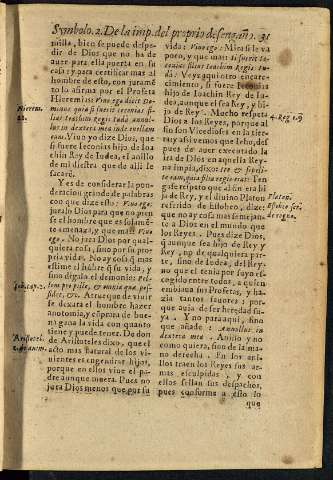 Symbolo. 2. De la imp. del proprio desengaño. 31
milla, bien se puede despe-
dir de Dios que no ha de
auer para ella puerta en su
casa: y para certificar mas al
hombre de esto, con juramē
to lo afirma por el Profeta
Hieremias: Viuo ego dicit Do-
minus: quia si fuerit Ieconias fi-
lius Ioachim regis Iuda annul-
lus in dextera mea inde euellam
eum. Viuo yo dize Dios, que
si fuere Ieconias hijo de Ioa
chin Rey de Iudea, el anillo
de mi diestra que de alli le
sacaré.
Y es de considerar la pon-
deracion grande de palabras
con que dize esto: Viuo ego:
jura lo Dios para que no pien
se el hombre que es solamē
te amenaza, y que mas? Viuo
ego. No jura Dios por qual-
quiera cosa, sino por su pro
pria vida. No ay cosa q̃ mas
estime el hõbre q̃ su vida, y
sino digalo el demonio: Pel-
lem pro pelle, & omnia quæ pos-
sidet, &c. Atrueque de viuir
se dexara el hombre hazer
anotomia, y cõprara de bue-
na gana la vida con quanto
tiene y puede tener. De don
de Aristoteles dixo, que el
acto mas natural de los vi-
uientes es engendrar hijos,
porque en ellos viue el pa-
dre aunque muera. Pues no
jura Dios menos que por su
vida: Viuo ego: Mira si le va
poco, y que mas: si fuerit Ie-
conias filius Ioachim Regis Iu-
da: Veys aqui otro encare-
cimiento, si fuere Ieconias
hijo de Ioachin Rey de Iu-
dea, aunque el sea Rey, y hi-
jo de Rey. Mucho respeta
Dios a los Reyes, porque al
fin son Vicedioses en la tier
ra; y assi vemos que Iehù, des
pues de auer executado la
ira de Dios en aquella Rey-
na impia, dixo: ite & sepeli-
te eam, quia filia regis erat: Ten
gase respeto que al fin era hi
ja de Rey, y el diuino Platon
referido de Estobeo, dize:
que no ay cosa mas semejan
te a Dios en el mundo que
los Reyes. Pues dize Dios,
q̃ aunque sea hijo de Rey y
Rey, no de qualquiera par-
te, sino de Iudea, del Rey-
no que el tenia por suyo es-
cogido entre todos, a quiẽ
embiaua sus Profetas, y ha-
zia tantos fauores; por-
que auia de ser heredad su-
ya. Y no para aqui, sino
que añade: Annullus in
dextera mea. Anillo y no
como quiera, sino de la ma-
no derecha. En los anil-
los traen los Reyes sus ar-
mas esculpidas, y con
ellos sellan sus despachos,
pues conforme a esto lo
que
Hierem.
22.
Iob, cap. 2.
Aristotel.
4. Reg. c. 9
Platon.